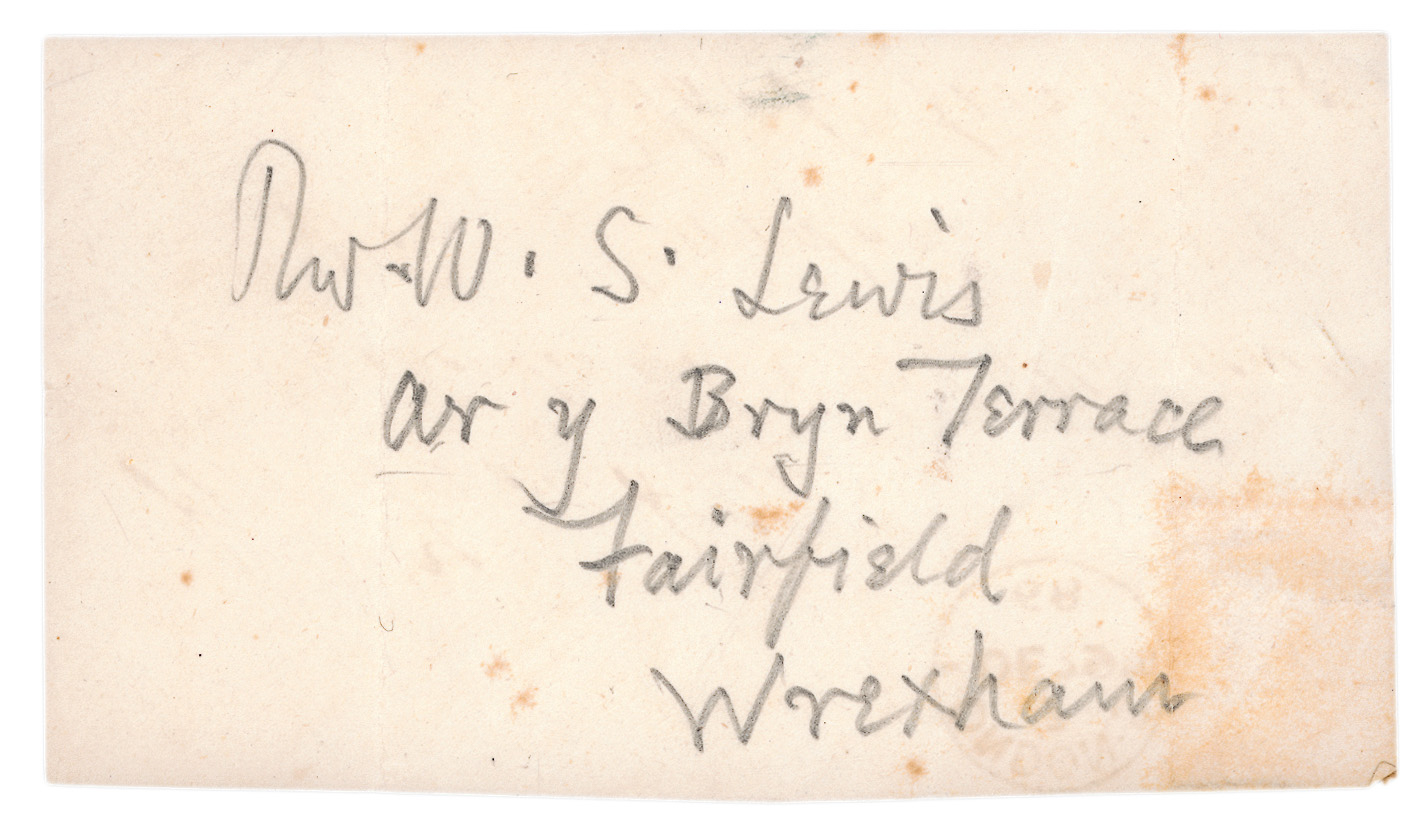 Rev W. S. Lewis
ar y Bryn Terrace
Fairfield
Wrexham